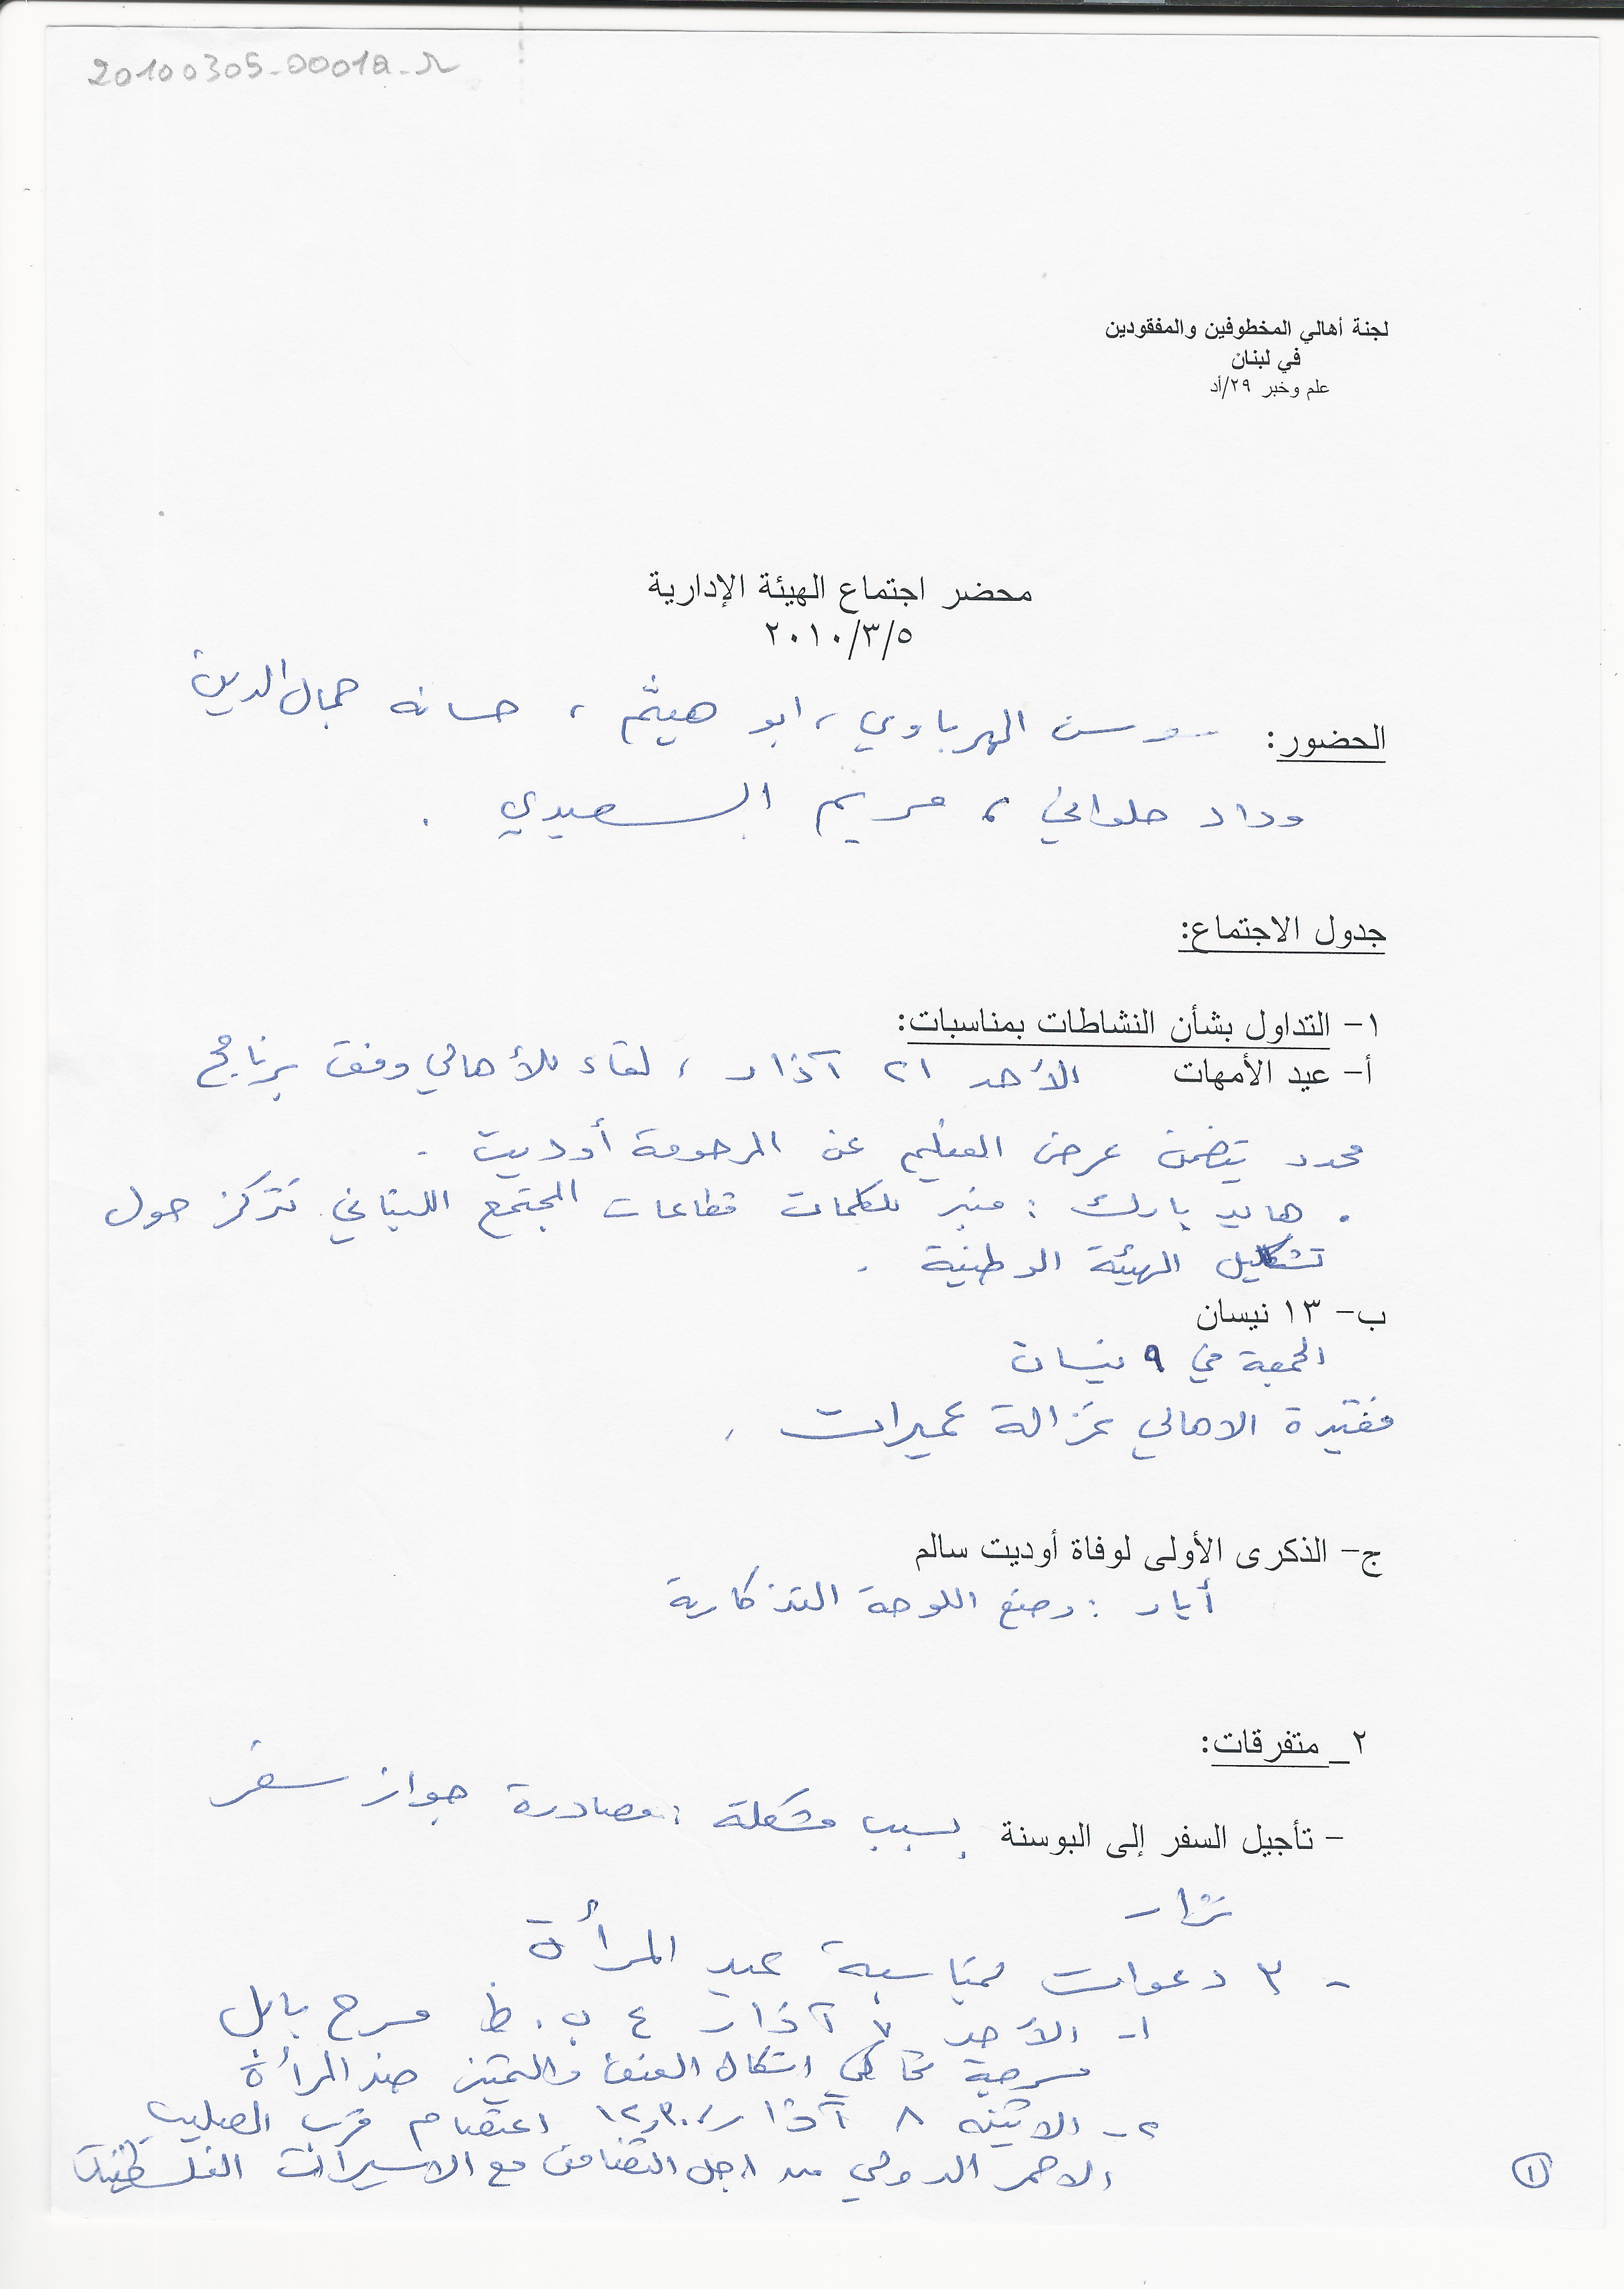 20100305-0001a-r
لجنة أهالي المخطوفين والمفقودين
في لبنان
علم وخبر ٢٩/أد
محضر اجتماع الهيئة الإدارية
٢٠١٠/٣/٥
الحضور: سوسن الهرباوي، ابو هيثم، حسانه جمال الدين
وداد حلواني، مريم السعيدي.
جدول الاجتماع:
١- التداول بشأن النشاطات بمناسبات:
أ- عيد الأمهات الأحد ٢١ آذار، لقاء للأهالي وفق برنامج
محدد يتضمن عرض الفيلم عن المرحومة أوديت.
. هايد بارك: منبر لكلمات قطاعات المجتمع اللبناني تتركز حول
تشكيل الهيئة الوطنية.
ب- ١٣ نيسان
الجمعة في ٩ نيسان
فقيدة الاهالي غزالة عميرات.
ج- الذكرى الأولى لوفاة أوديت سالم
أيار: وضع اللوحة التذكارية
٢_ متفرقات:
- تأجيل السفر إلى البوسنة بسبب مشكلة: مصادرة جواز سفر
نزار
- ٣ دعوات لمناسبة عيد المرأة
١- الأحد ٧ آذار ٤ ب.ظ مسرح بابل
مسرحية تحاكي اشكال العنف والتمييز ضد المرأة
٢- الاثنين ٨ آذار ١٢,٣٠ اعتصام قرب الصليب
الاحمر الدولي من اجل التضامن مع الاسيرات الفلسطينيات
١